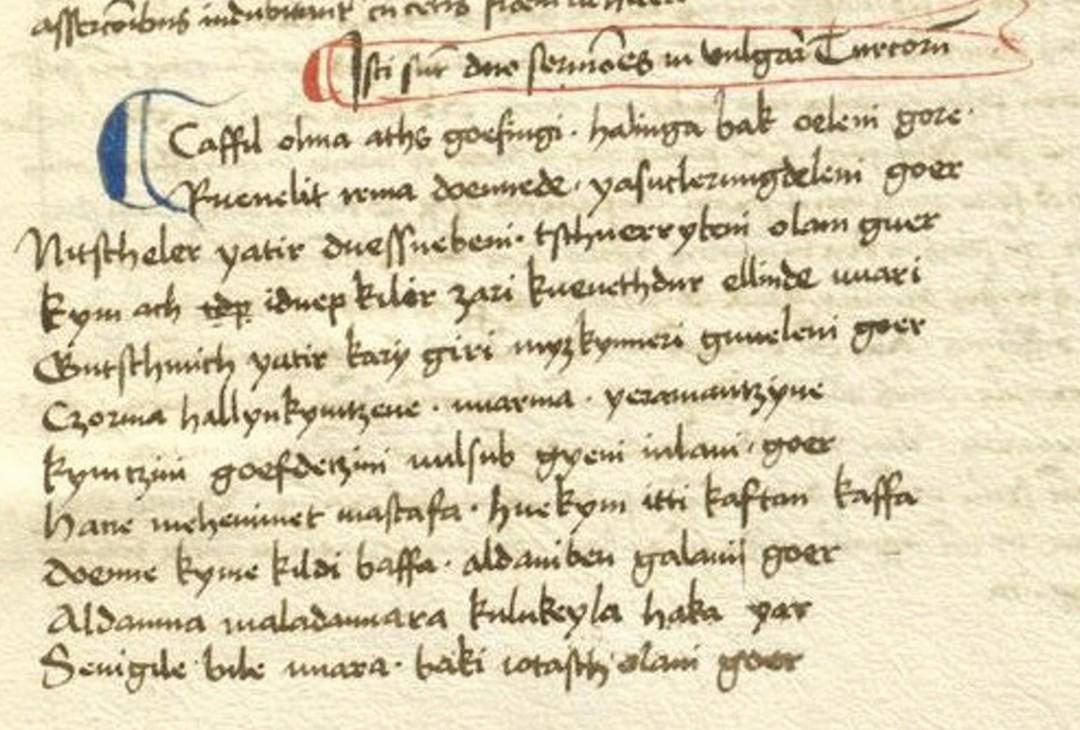 assercoibus indubitant
Isti sūt duo sermōes in vulgari Turcorū
Caffil olma aths goesungi · halinga bak oeleni gore ·
Kuenelit irma doennede · yasuclerungdeleni goer
Nitstheler yatir duessuebeni · tsthuerrykeni olani guer
kym ach iduep kilir zari kueuethdur ellinde uuari
Gutsthuich yatir kary giri myzkynneri guueleni goer
Czorma hallynkymtzene · uuarma · yeramantzyne
kymtzini goesdetzini uulsub gyeni inlani · goer
hane mehemmet mastafa · huekym itti kaftan kaffa
doenne kyme kildi baffa · aldaniben galanij goer
Aldanma maladauuara kulukeyla haka yar
Senigile bile uuara · baki iotasth olani goer